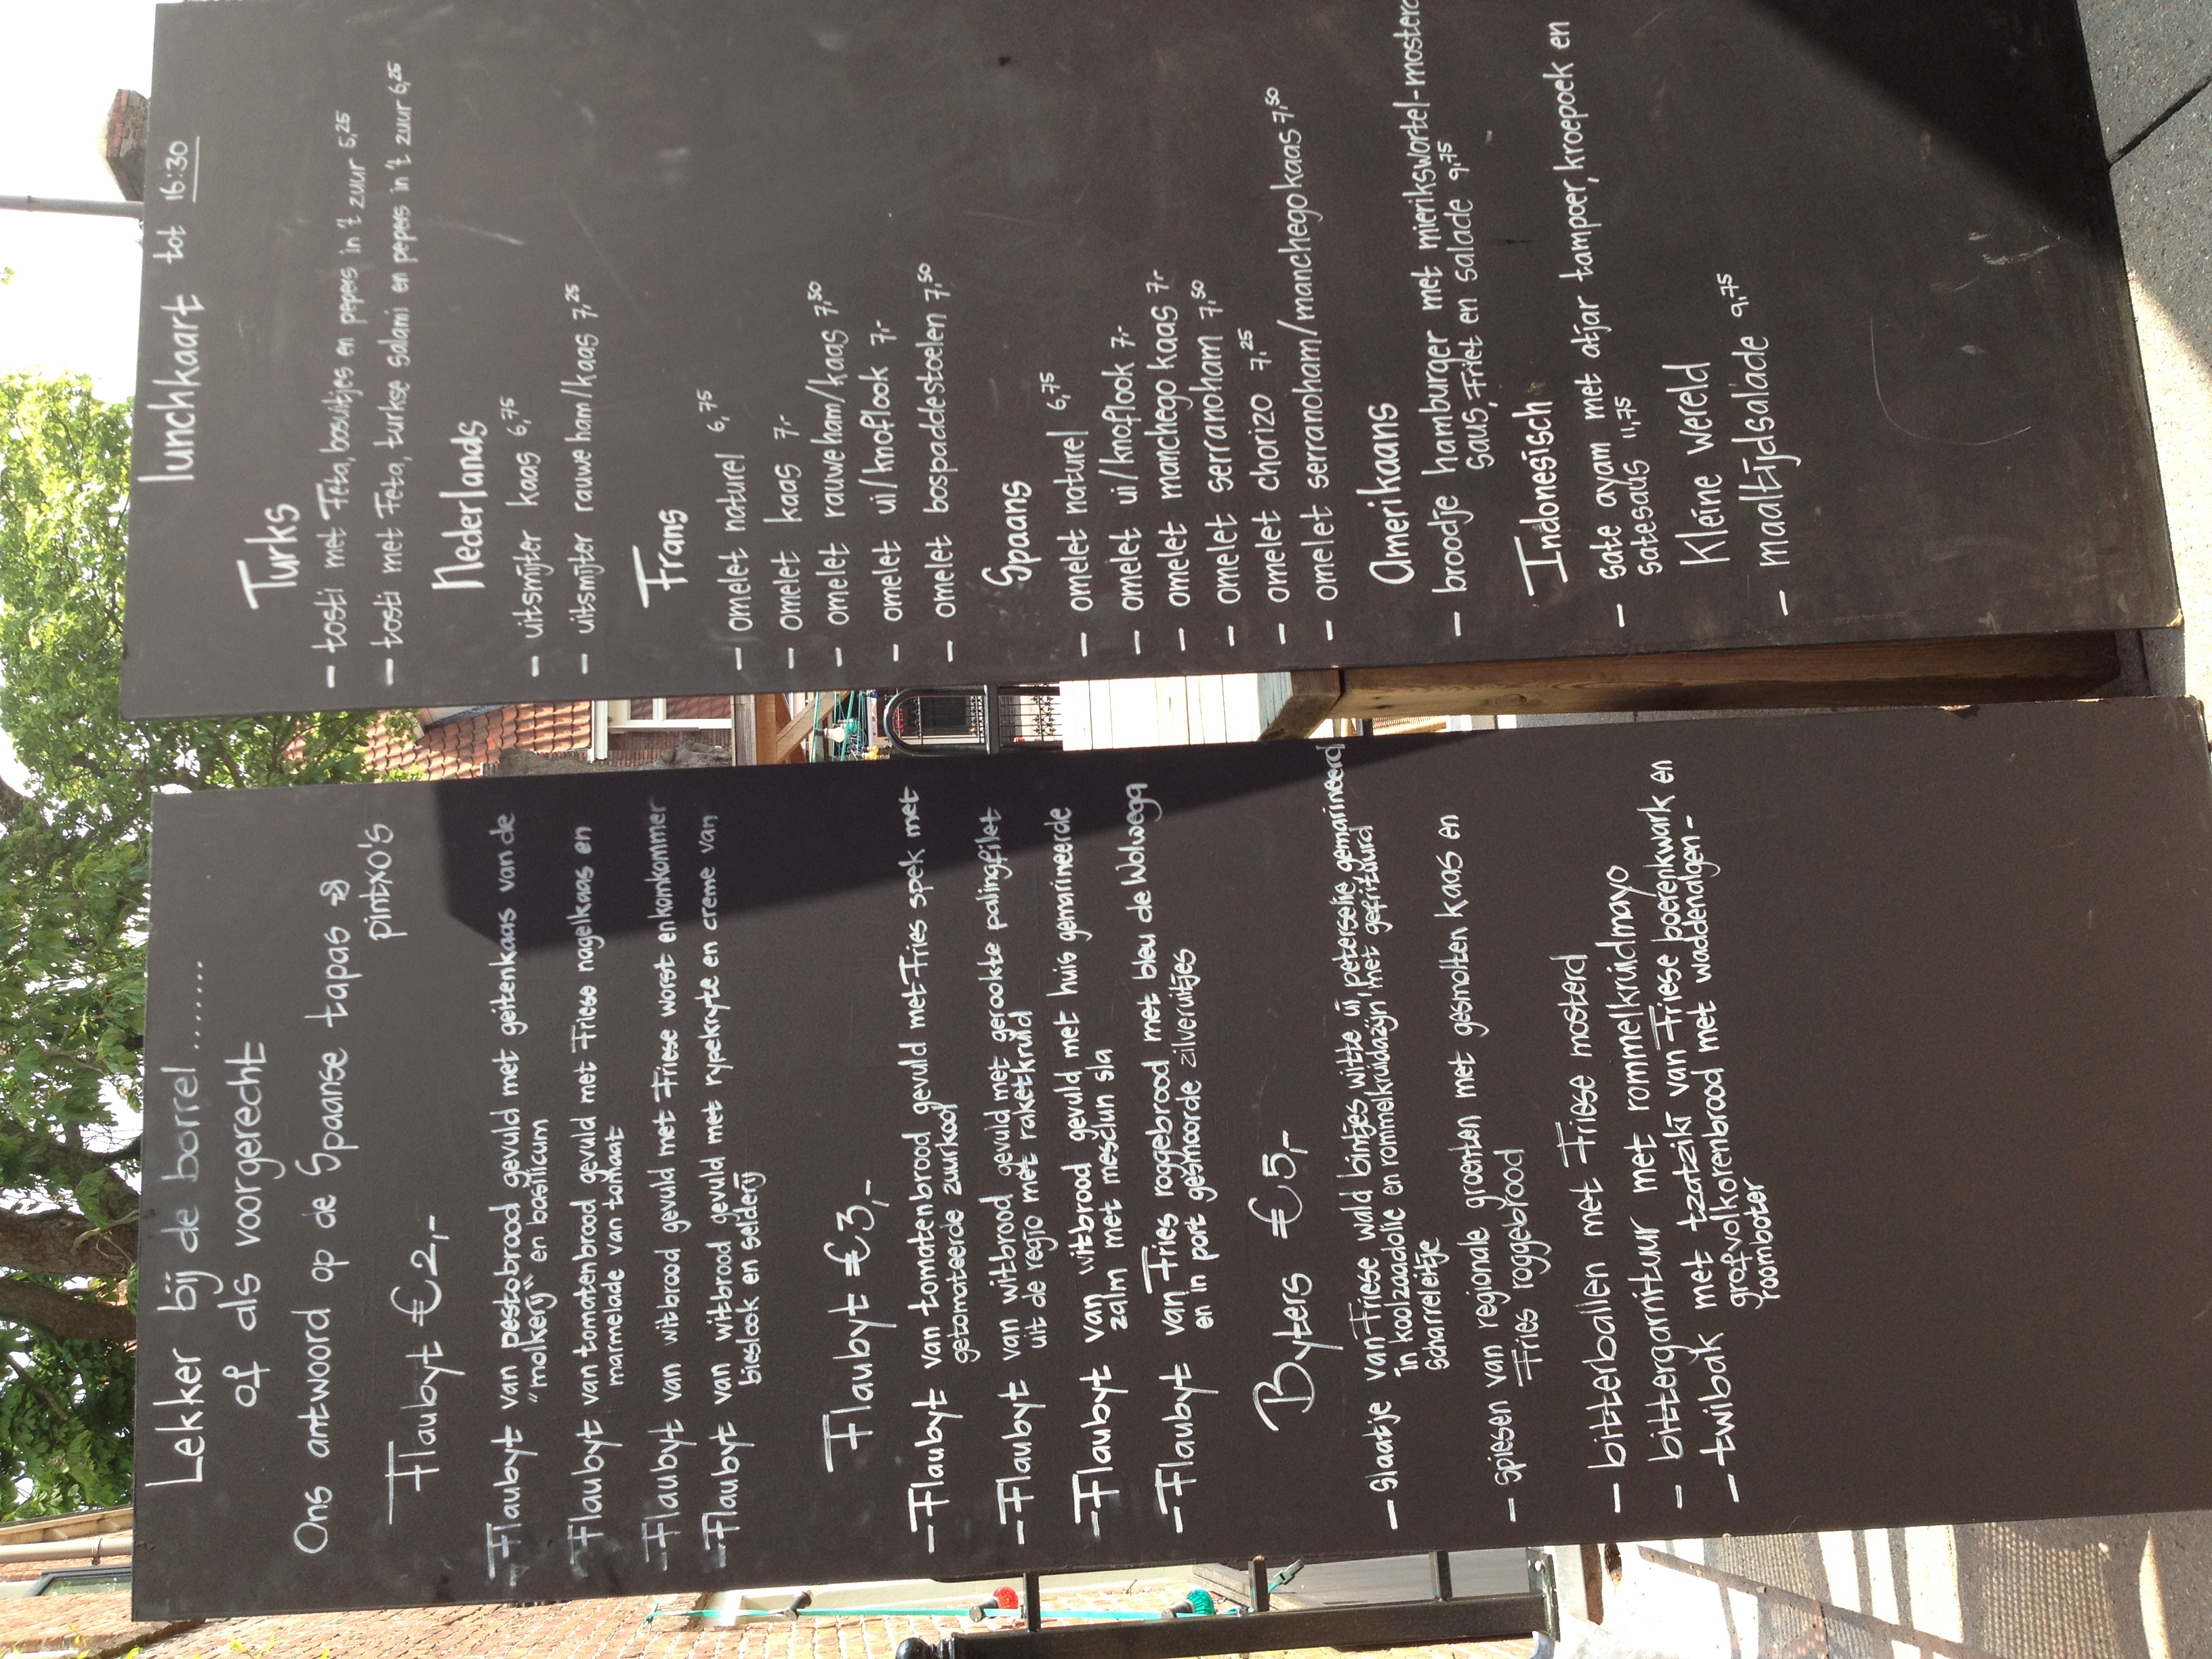 Lekker bij de borrel.......
of als voorgerecht
Ons antwoord op de Spaanse tapas &
pintxo's
Flaubyt € 2,-
- Flaubyt van pestobrood gevuld met geitenkaas van de
"molkerij" en basilicum
- Flaubyt van tomatenbrood gevuld met Friese nagelkaas en
marmelade van tomaat
- Flaubyt van witbrood gevuld met Friese worst en komkommer
- Flaubyt van witbrood gevuld met rypekryte en creme van
bieslook en selderij
Flaubyt € 3,-
- Flaubyt van tomatenbrood gevuld met Fries spek met
getomateerde zuurkool
- Flaubyt van witbrood gevuld met gerookte palingfilet
uit de regio met raketkruid
- Flaubyt van witbrood gevuld met huis gemarineerde
zalm met mesclun sla
- Flaubyt van Fries roggebrood met bleu de Wolwega
en in port gesmoorde zilveruitjes
Byters € 5,-
- slaatje van Friese wald bintjes witte ui, peterselie, gemarineerd
in koolzaadolie en rommelkruidazijn, met gefrituurd
scharreleitje
- spiesen van regionale groenten met gesmolten kaas en
Fries roggebrood
- bitterballen met Friese mosterd
- bittergarnituur met rommelkruidmayo
- twibak met tzatziki van Friese boerenkwark en
grofvolkorenbrood met waddenalgen-
roomboter
lunchkaart tot 16:30
Turks
- tosti met Feta, bosuitjes en pepers in 't zuur 5,25
- tosti met Feta, turkse salami en pepers in 't zuur 6,25
Nederlands
- uitsmijter kaas 6,75
- uitsmijter rauwe ham/kaas 7,25
Frans
- omelet naturel 6,75
- omelet kaas 7,-
- omelet rauwe ham/kaas 7,50
- omelet ui/knoflook 7,-
- omelet bospaddestoelen 7,50
Spaans
- omelet naturel 6,75
- omelet ui/knoflook 7,-
- omelet manchego kaas 7,-
- omelet serranoham 7,50
- omelet chorizo 7,25
- omelet serranoham/manchegokaas 7,50
Amerikaans
- broodje hamburger met mierikswortel-mosterd
saus, Friet en salade 9,75
Indonesisch
- sate ayam met atjar tampoer, kroepoek en
satesaus 11,75
Kleine wereld
- maaltijdsalade 9,75